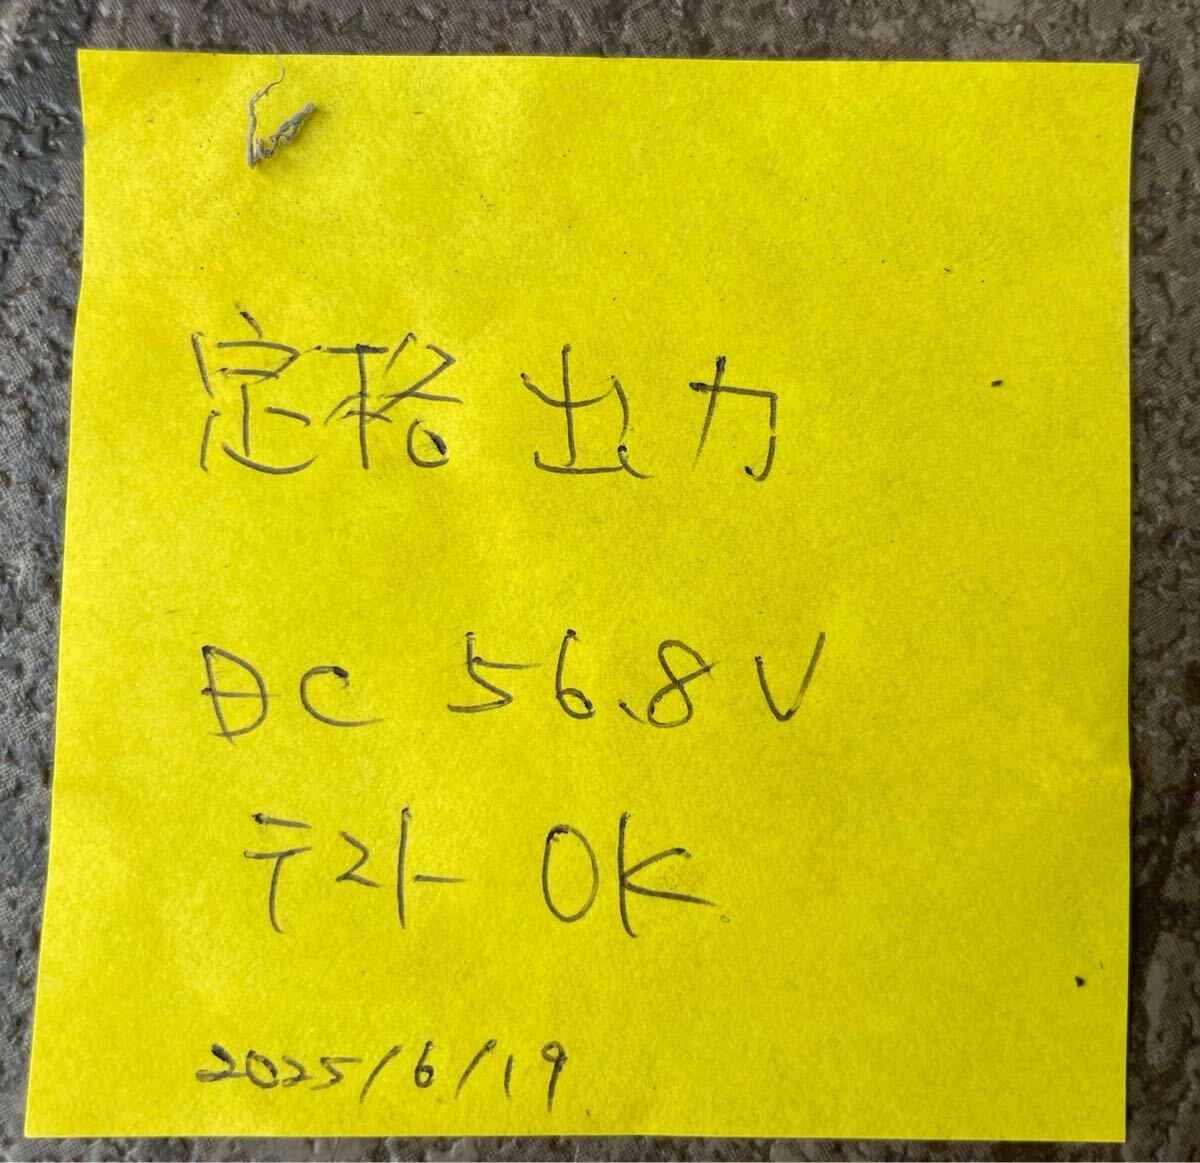 定格出力
DC 56.8V
テスト OK
2025/6/19